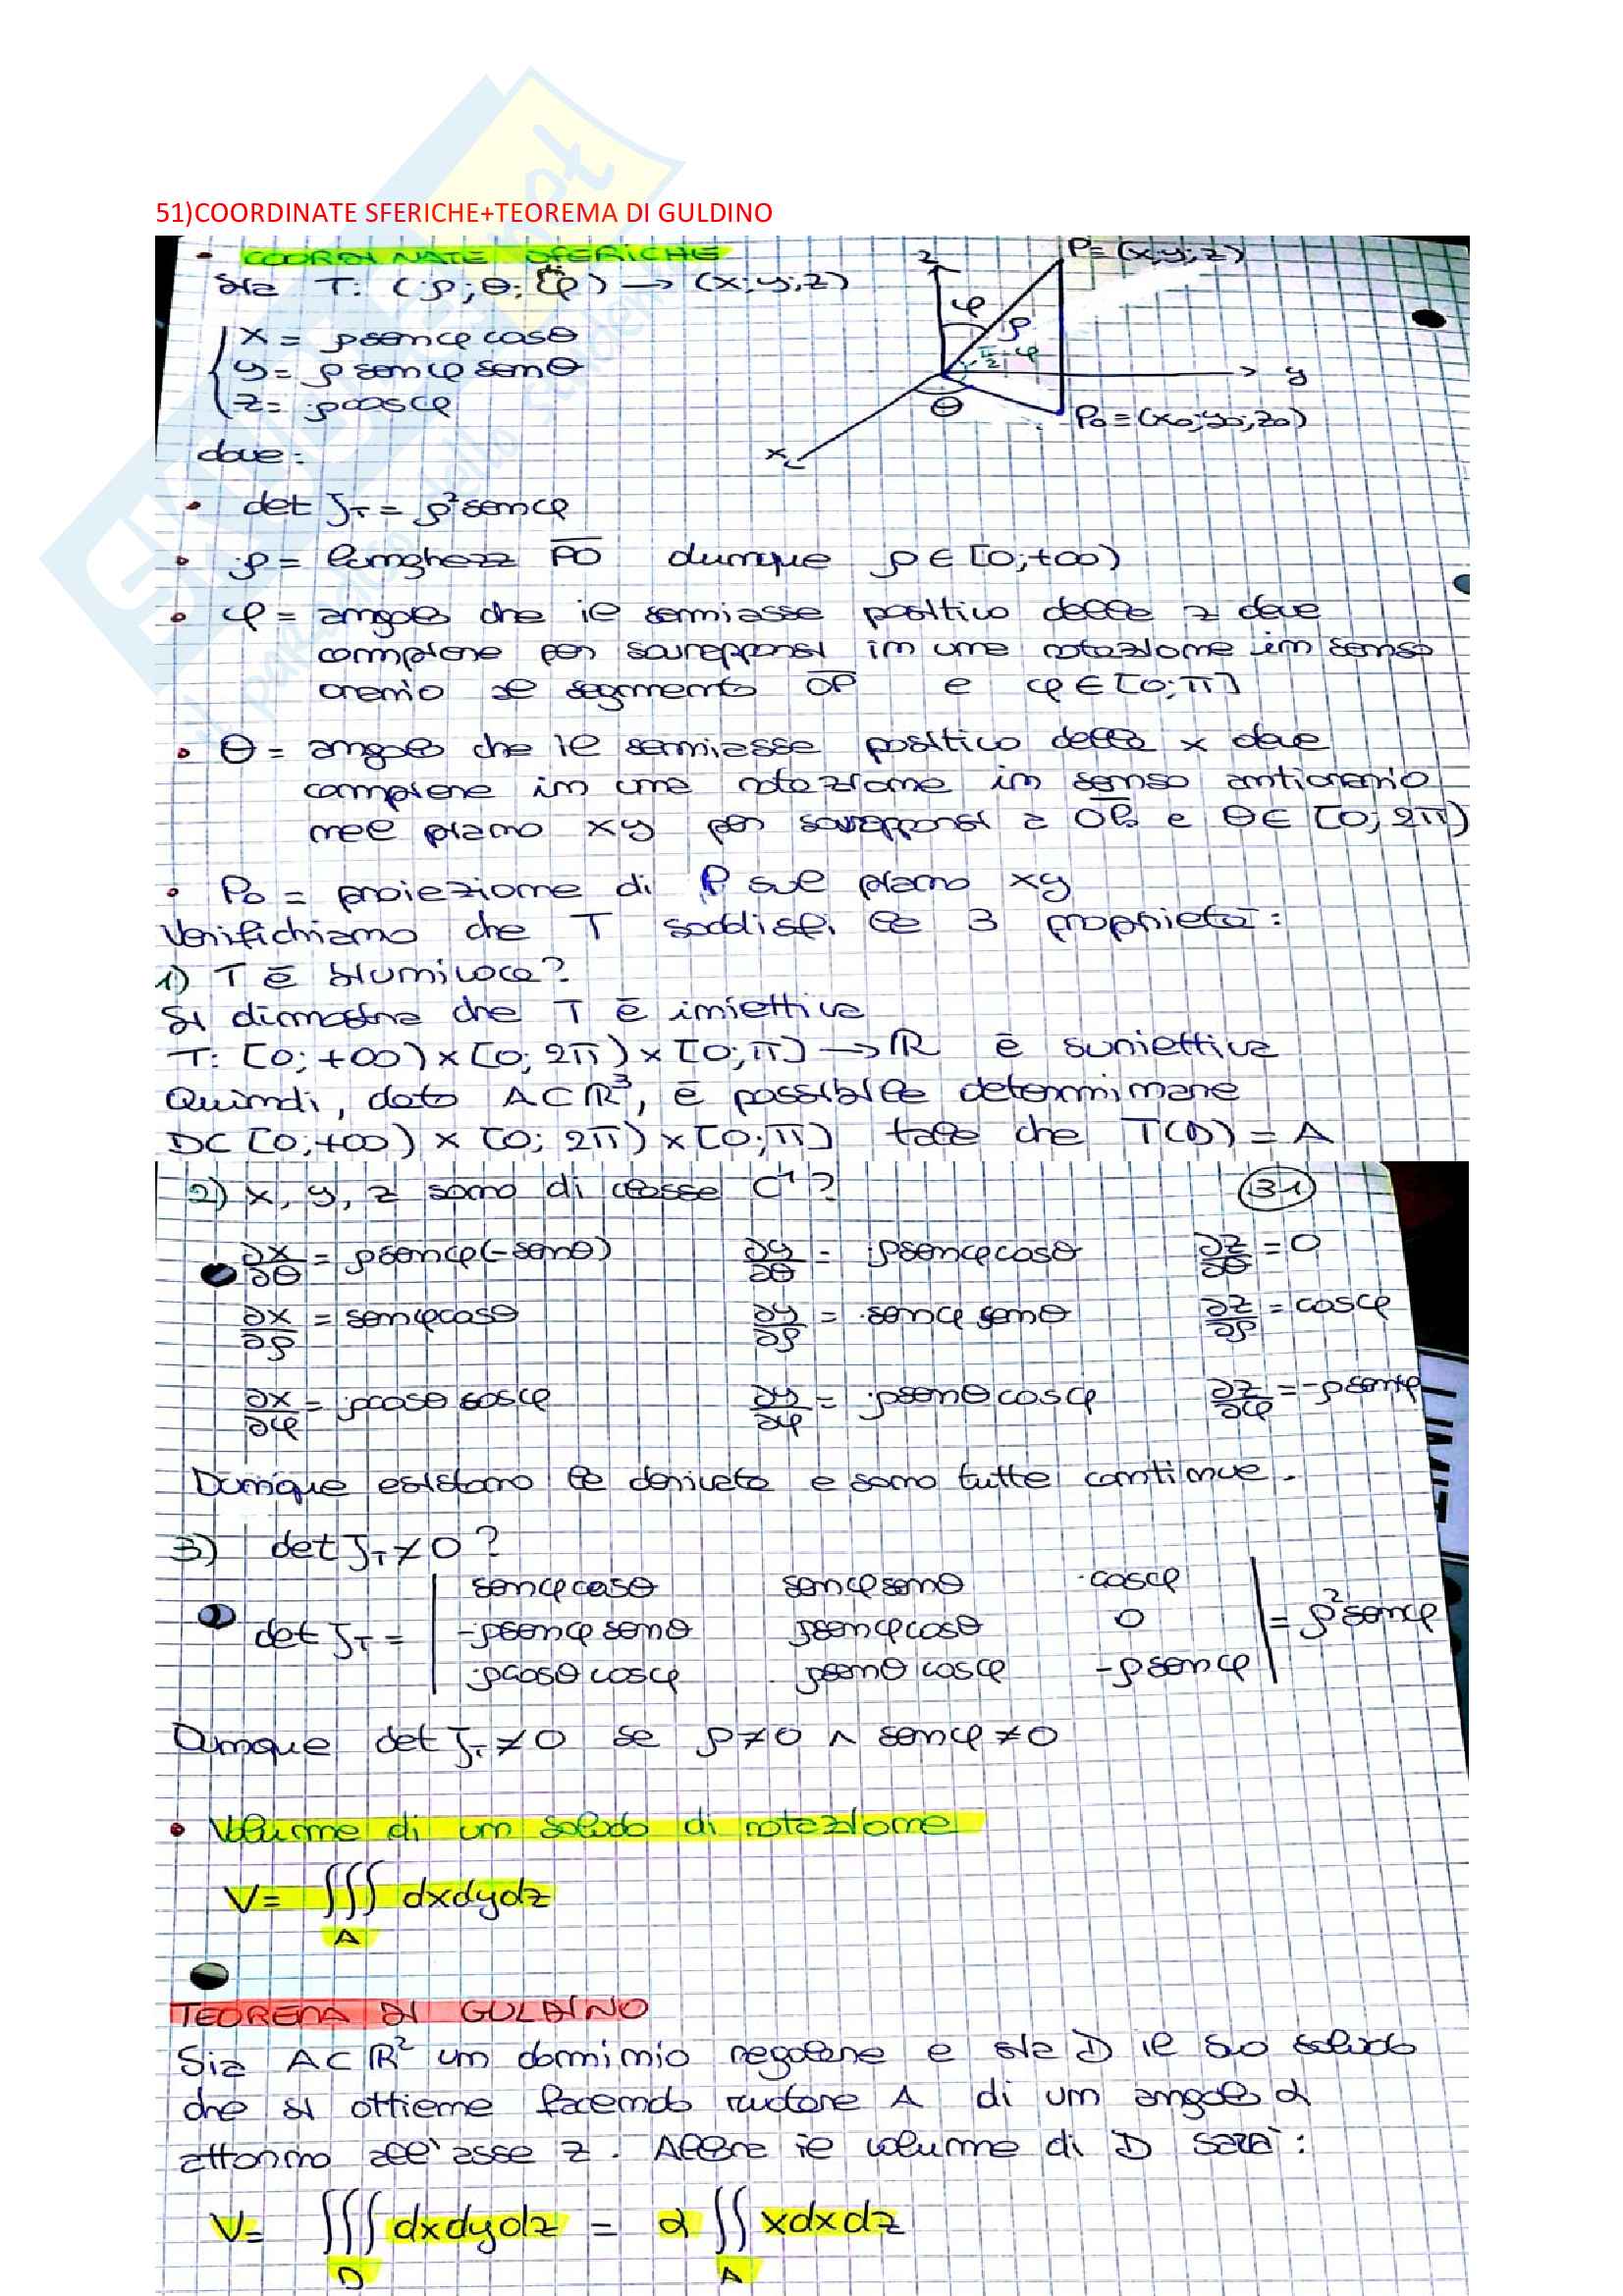 51)COORDINATE SFERICHE+TEOREMA DI GULDINO
• COORDINATE SFERICHE
Sia T: (ρ;θ;φ) → (x;y;z)
x = ρsenφcosθ
y = ρsenφsenθ
z = ρcosφ
z
P=(x;y;z)
φ
ρ
π/2-φ
y
θ
P₀=(x₀;y₀;z₀)
x
dove:
• det J_T = ρ²senφ
• ρ = lunghezza PO dunque ρ∈[0;+∞)
• φ = angolo che il semiasse positivo delle z deve
compiere per sovrapporsi in una rotazione in senso
orario al segmento OP e φ∈[0;π]
• θ = angolo che il semiasse positivo delle x deve
compiere in una rotazione in senso antiorario
nel piano xy per sovrapporsi a OP₀ e θ∈[0;2π)
• P₀ = proiezione di P sul piano xy
Verifichiamo che T soddisfi le 3 proprietà:
1) T è biunivoca?
Si dimostra che T è iniettiva
T: [0;+∞)×[0;2π)×[0;π] → R è suriettiva
Quindi, dato A⊂R³, è possibile determinare
D⊂[0;+∞)×[0;2π)×[0;π] tale che T(D)=A
2) x, y, z sono di classe C¹? 31
∂x/∂θ = ρsenφ(-senθ) ∂y/∂θ = ρsenφcosθ ∂z/∂θ = 0
∂x/∂ρ = senφcosθ ∂y/∂ρ = senφsenθ ∂z/∂ρ = cosφ
∂x/∂φ = ρcosθcosφ ∂y/∂φ = ρsenθcosφ ∂z/∂φ = -ρsenφ
Dunque esistono le derivate e sono tutte continue.
3) det J_T ≠ 0?
senφcosθ senφsenθ cosφ
det J_T = -ρsenφsenθ ρsenφcosθ 0 = ρ²senφ
ρcosθcosφ ρsenθcosφ -ρsenφ
Dunque det J_T ≠ 0 se ρ≠0 ∧ senφ≠0
• Volume di un solido di rotazione
V= ∭ dxdydz
A
TEOREMA DI GULDINO
Sia A⊂R² un dominio regolare e sia D il suo solido
che si ottiene facendo ruotare A di un angolo α
attorno all'asse z. Allora il volume di D sarà:
V= ∭ dxdydz = α ∬ xdxdz
D A